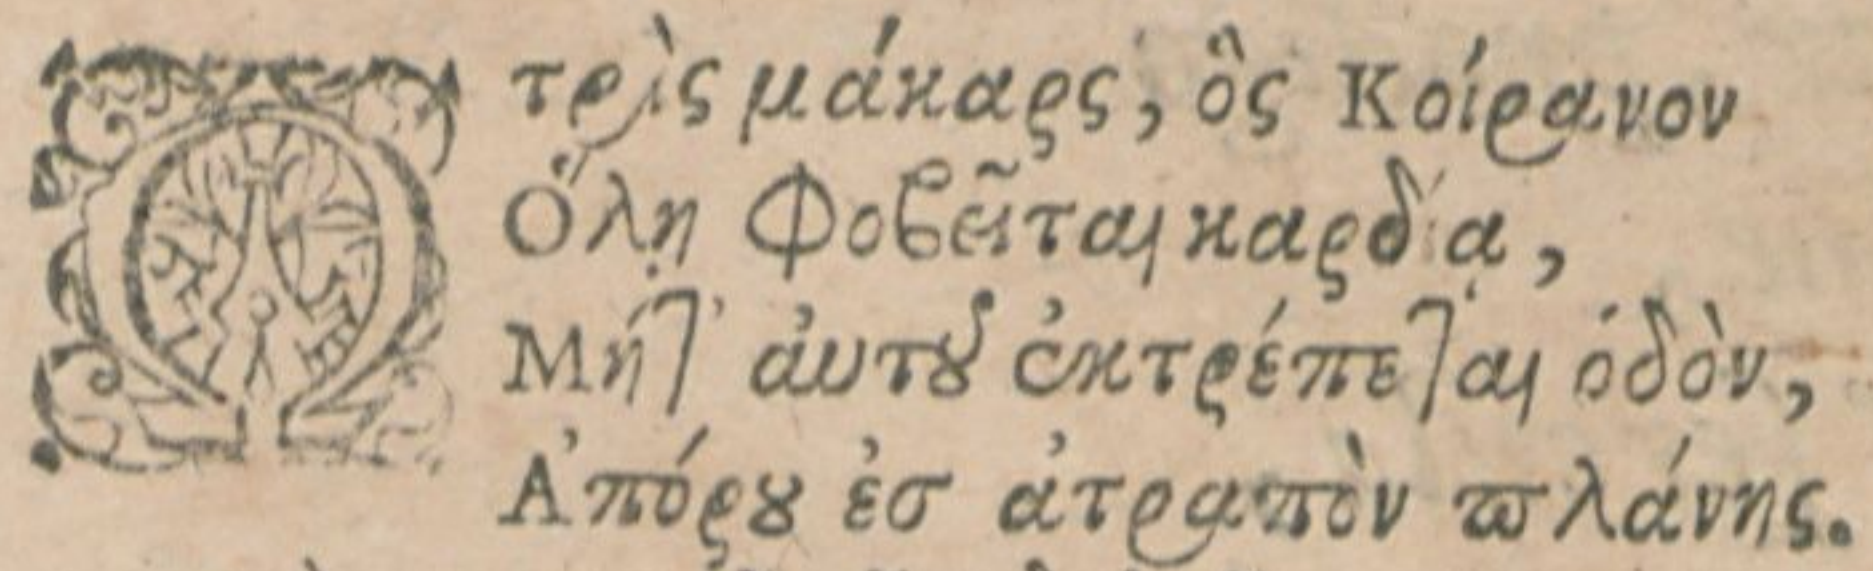 Ω τρὶς μάκαρς, ὃς Κοίρανον
Ὅλῃ Φοβεῖται καρδίᾳ,
Μήτ' ἀυτοῦ ἐκτρέπεται ὁδὸν,
Ἀπόρου ἐσ ἀτραπὸν πλάνης.